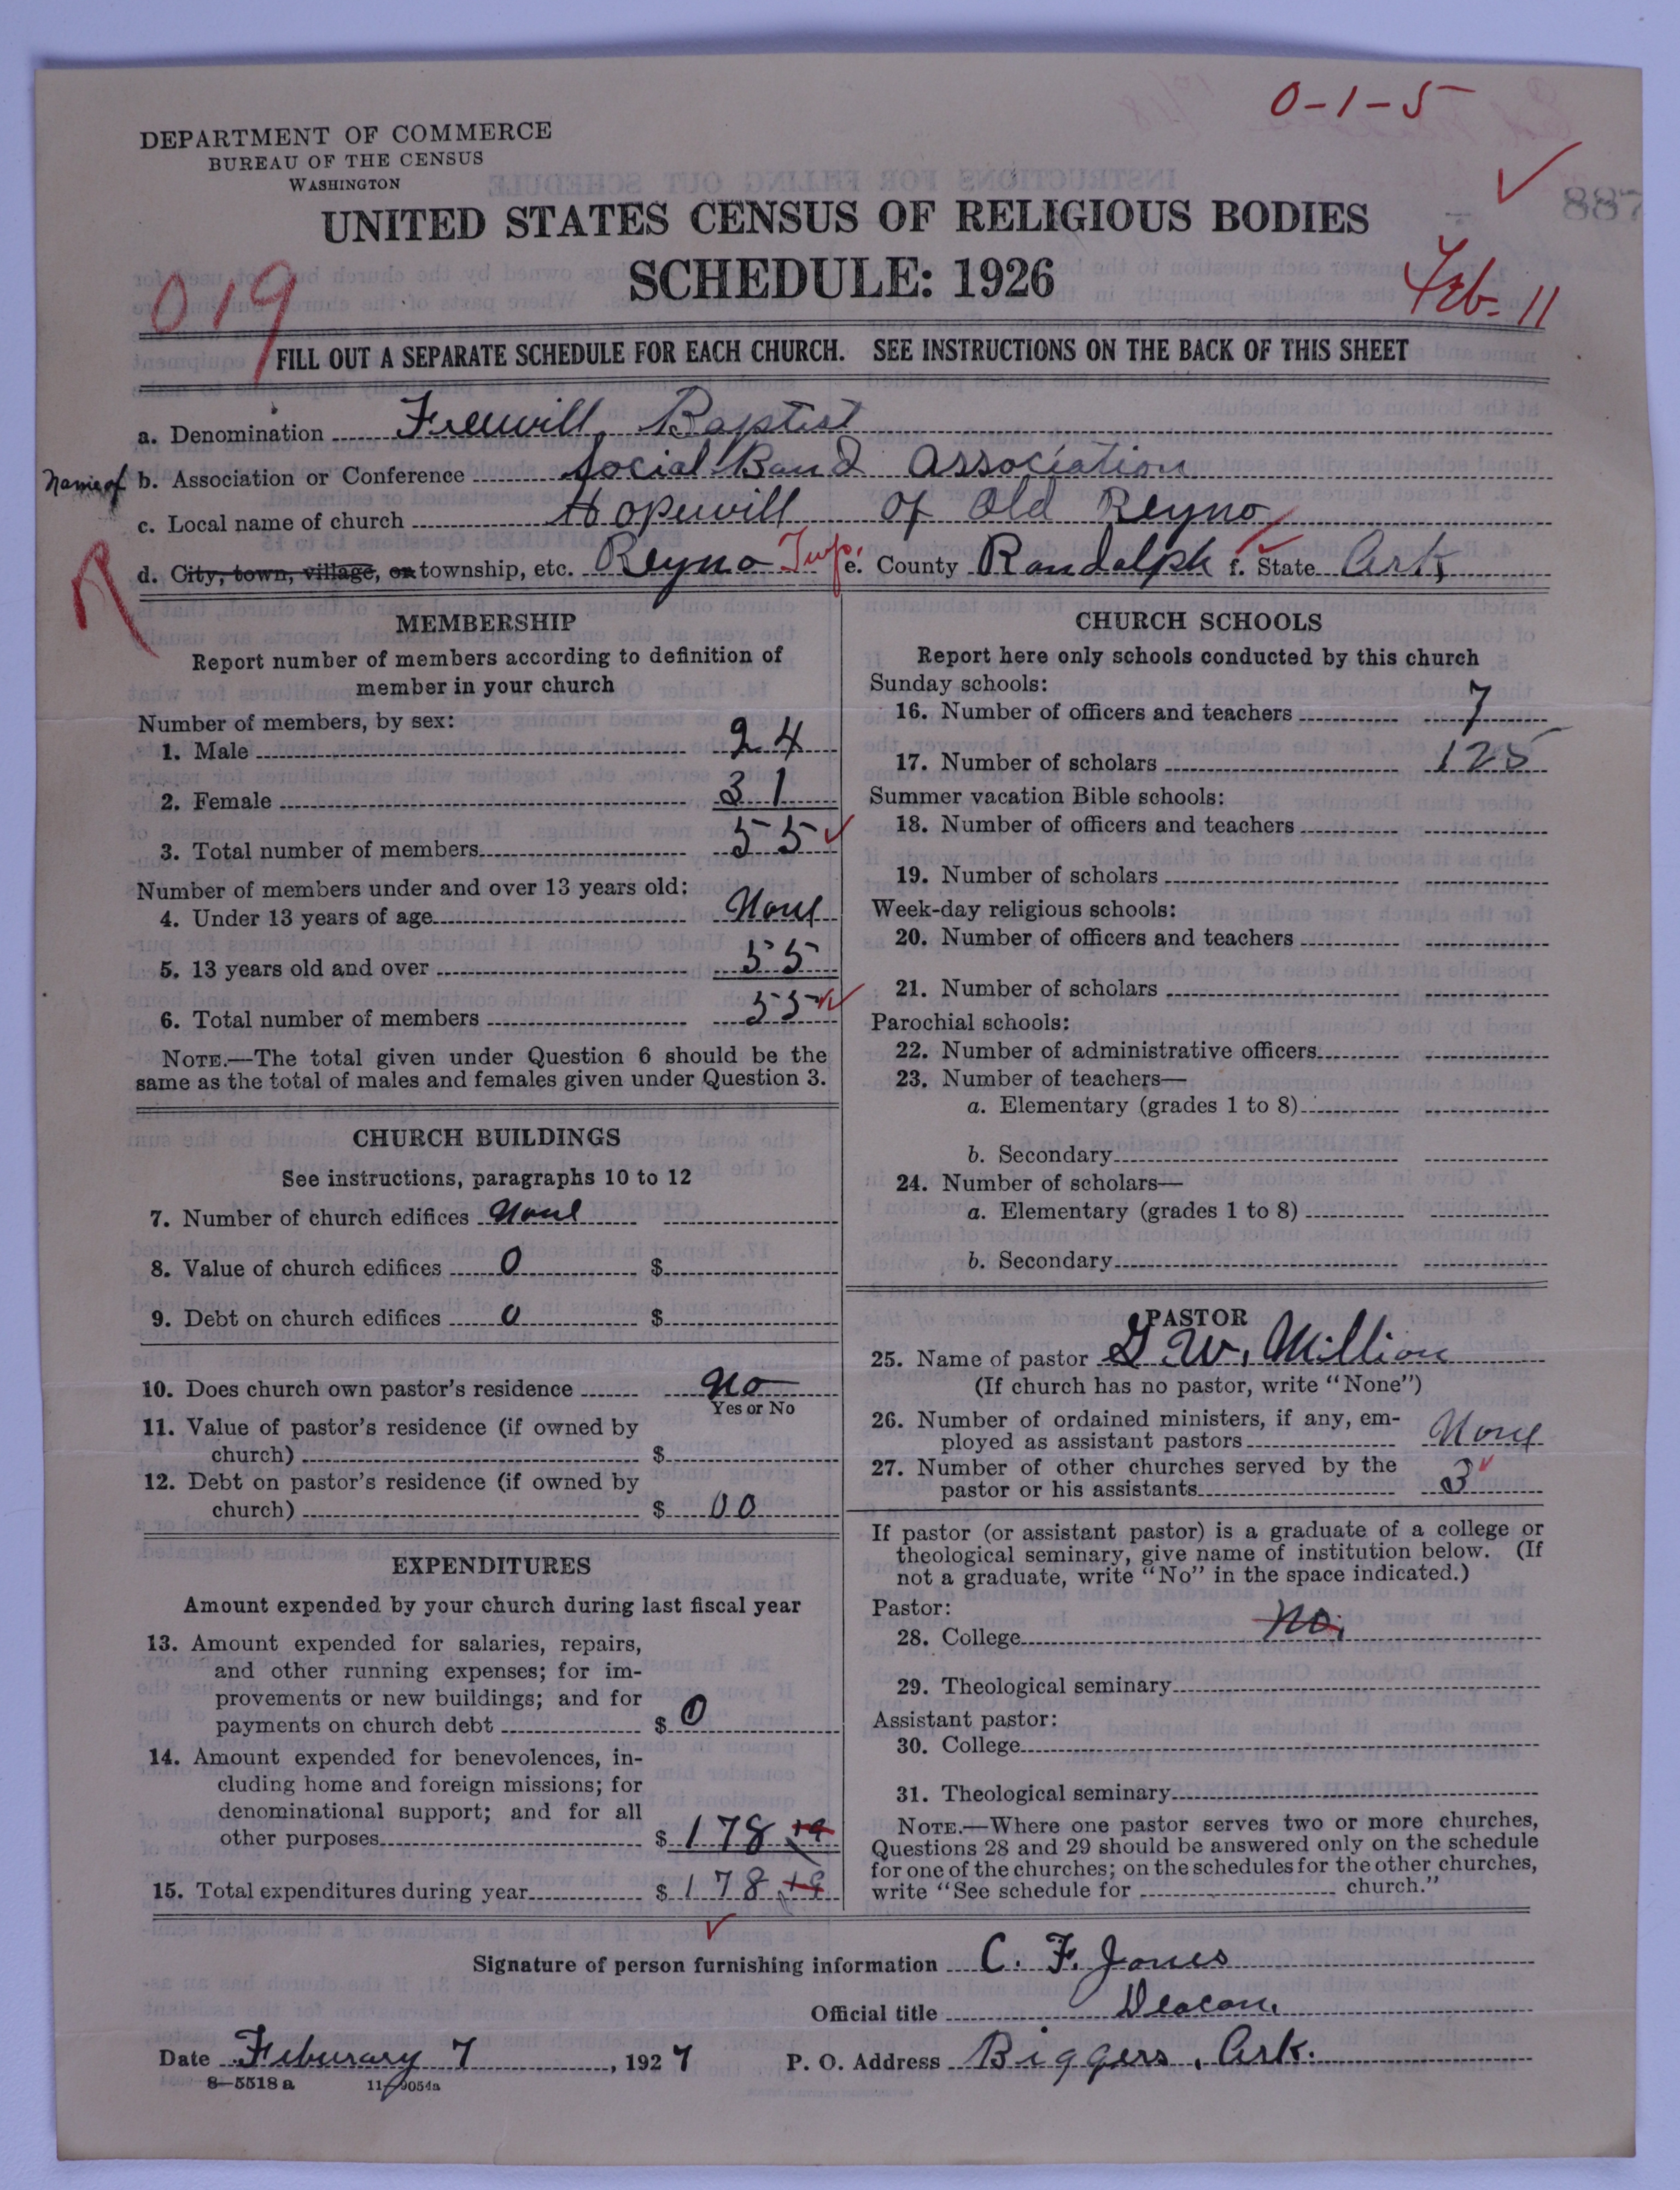 0-1-5
DEPARTMENT OF COMMERCE
BUREAU OF THE CENSUS
WASHINGTON
887
UNITED STATES CENSUS OF RELIGIOUS BODIES
SCHEDULE: 1926
019
Feb. 11
FILL OUT A SEPARATE SCHEDULE FOR EACH CHURCH. SEE INSTRUCTIONS ON THE BACK OF THIS SHEET
a. Denomination Freewill Baptist
Name of b. Association or Conference Social Band Association
c. Local name of church Hopewill of Old Reyno
R
d. City, town, village, or township, etc. Reyno Twp. e. County Randolph f. State Ark
MEMBERSHIP
Report number of members according to definition of
member in your church
Number of members, by sex:
1. Male 24
2. Female 31
3. Total number of members 55
Number of members under and over 13 years old:
4. Under 13 years of age None
5. 13 years old and over 55
6. Total number of members 55
NOTE.—The total given under Question 6 should be the
same as the total of males and females given under Question 3.
CHURCH BUILDINGS
See instructions, paragraphs 10 to 12
7. Number of church edifices None
8. Value of church edifices 0 $
9. Debt on church edifices 0 $
10. Does church own pastor's residence No
Yes or No
11. Value of pastor's residence (if owned by
church) $
12. Debt on pastor's residence (if owned by
church) $ 00
EXPENDITURES
Amount expended by your church during last fiscal year
13. Amount expended for salaries, repairs,
and other running expenses; for im-
provements or new buildings; and for
payments on church debt $ 0
14. Amount expended for benevolences, in-
cluding home and foreign missions; for
denominational support; and for all
other purposes $ 178 19
15. Total expenditures during year $ 178 19
CHURCH SCHOOLS
Report here only schools conducted by this church
Sunday schools:
16. Number of officers and teachers 7
17. Number of scholars 125
Summer vacation Bible schools:
18. Number of officers and teachers
19. Number of scholars
Week-day religious schools:
20. Number of officers and teachers
21. Number of scholars
Parochial schools:
22. Number of administrative officers
23. Number of teachers—
a. Elementary (grades 1 to 8)
b. Secondary
24. Number of scholars—
a. Elementary (grades 1 to 8)
b. Secondary
PASTOR
25. Name of pastor G. W. Million
(If church has no pastor, write "None")
26. Number of ordained ministers, if any, em-
ployed as assistant pastors None
27. Number of other churches served by the
pastor or his assistants 3
If pastor (or assistant pastor) is a graduate of a college or
theological seminary, give name of institution below. (If
not a graduate, write "No" in the space indicated.)
Pastor:
28. College No.
29. Theological seminary
Assistant pastor:
30. College
31. Theological seminary
NOTE.—Where one pastor serves two or more churches,
Questions 28 and 29 should be answered only on the schedule
for one of the churches; on the schedules for the other churches,
write "See schedule for church."
Signature of person furnishing information C. F. Jones
Official title Deacon.
Date Feburary 7, 1927 P. O. Address Biggers, Ark.
8-5518 a 11-9054a